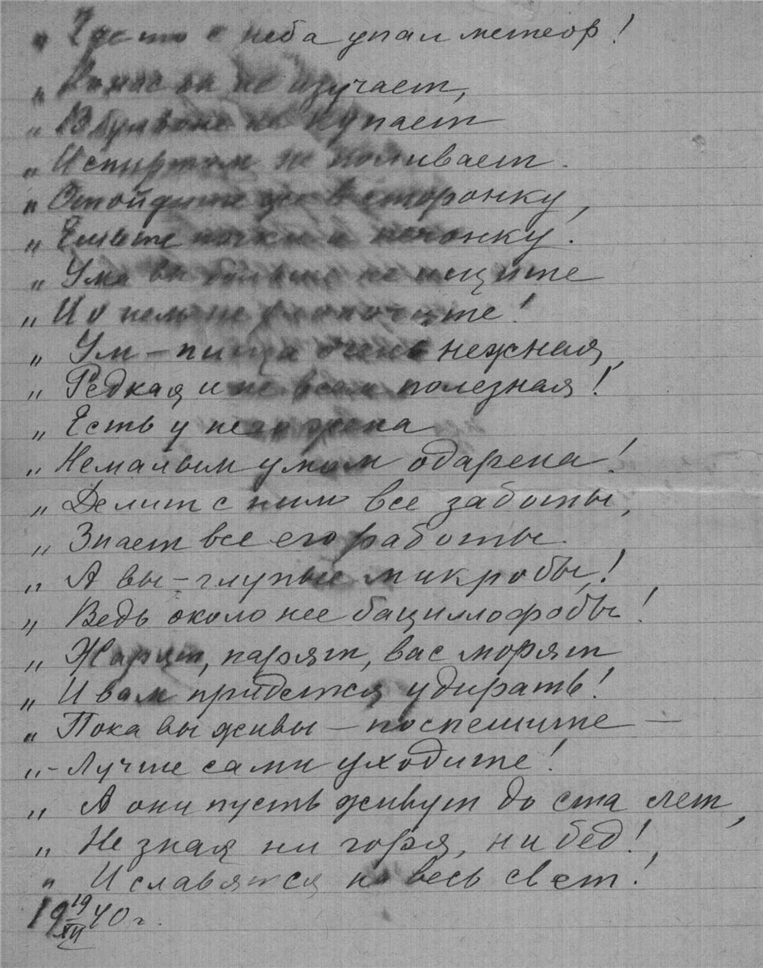 „ Где-то с неба упал метеор!
„ Он нас не изучает,
„ В бульоне не купает
„ И спиртом не поливает.
„ Отойдите же в сторонку,
„ Ешьте почки и печонку.
„ Ума вы больше не ищите
„ И о нем не хлопочите!
„ Ум – пища очень нежная,
„ Редкая и не всем полезная!
„ Есть у него жена
„ Немалым умом одарена!
„ Делит с ним все заботы,
„ Знает все его работы.
„ А вы – глупые микробы!
„ Ведь около нее бациллофобы!
„ Жарят, парят, вас морят
„ И вам придется удирать!
„ Пока вы живы – поспешите –
„ - Лучше сами уходите!
„ А они пусть живут до ста лет,
„ Не зная ни горя, ни бед!
„ И славятся на весь свет!
19 19/XII 40 г.